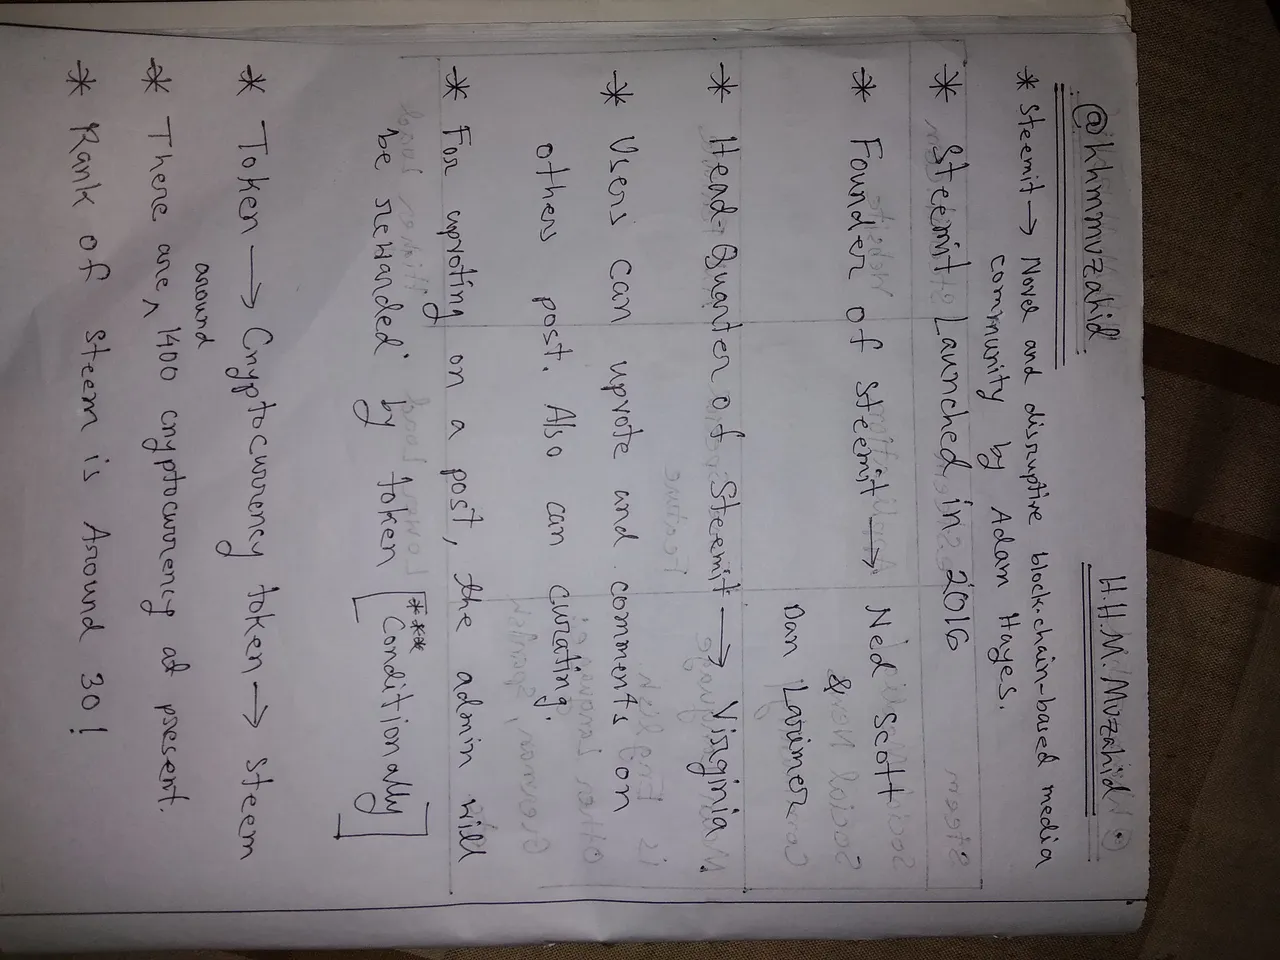 @hhmmuzahid. H.H.M. Muzahid
* Steemit → Novel and disruptive block-chain-based media
community by Adam Hayes.
* Steemit Launched in 2016
* Founder of steemit → Ned Scott
&
Dan Larimer
* Head-Quarter of Steemit → Virginia
* Users can upvote and comments on
others post. Also can curating.
* For upvoting on a post, the admin will
be rewarded by token [Conditionally]
***
* Token → Cryptocurrency token → steem
around
* There are ^ 1400 cryptocurrency at present.
* Rank of steem is Around 30!